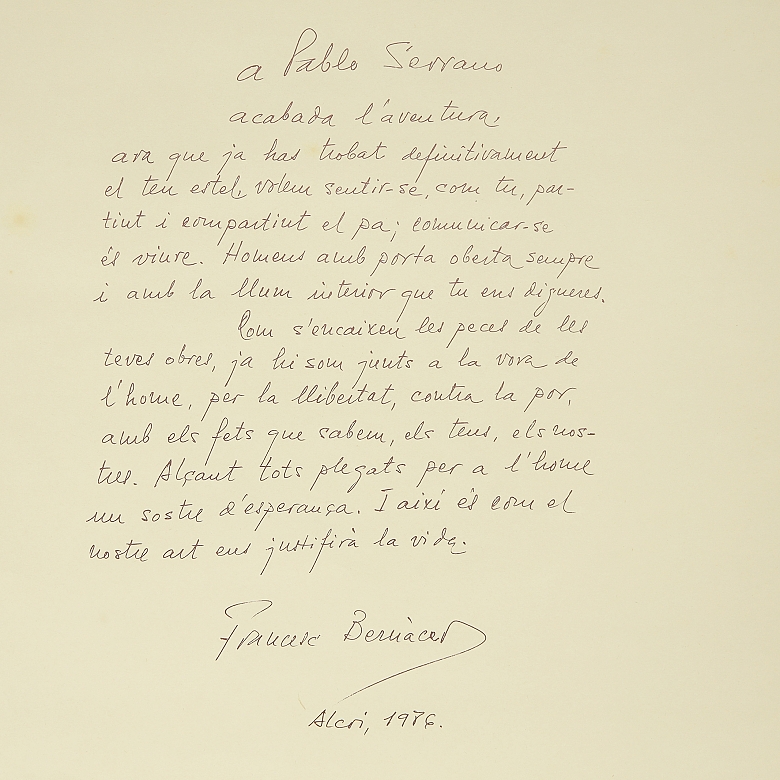 a Pablo Serrano
acabada l'aventura,
ara que ja has trobat definitivament
el teu estel, volem sentir-se, com tu, par-
tint i compartint el pa; comunicar-se
és viure. Homens amb porta oberta sempre
i amb la llum interior que tu ens digueres.
Com s'encaixen les peces de les
teves obres, ja hi som junts a la vora de
l'home, per la llibertat, contra la por,
amb els fets que sabem, els teus, els nos-
tres. Alçant tots plegats per a l'home
un sostre d'esperança. I així és com el
nostre art ens justifirà la vida.
Francesc Bernàcer
Alcoi, 1976.